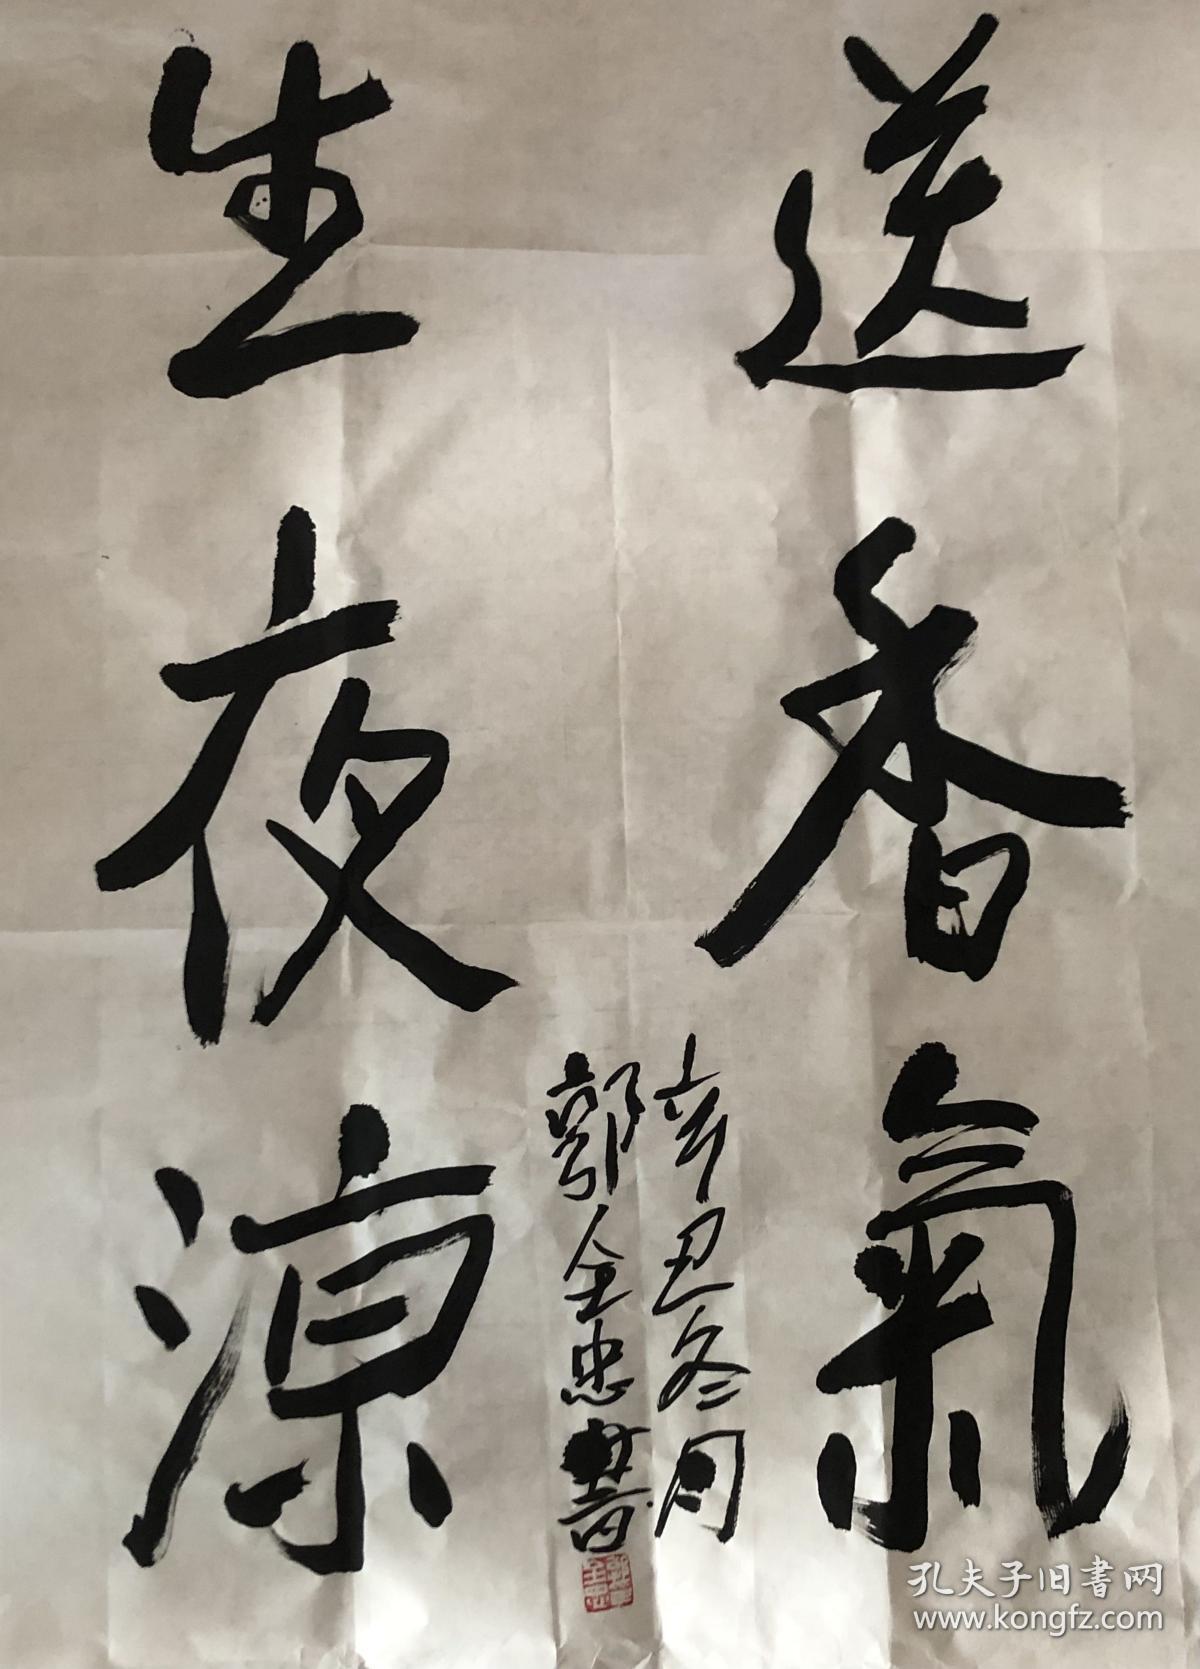 送香氣
生夜凉
辛丑冬月
郭全忠書
孔夫子旧書网
www.kongfz.com